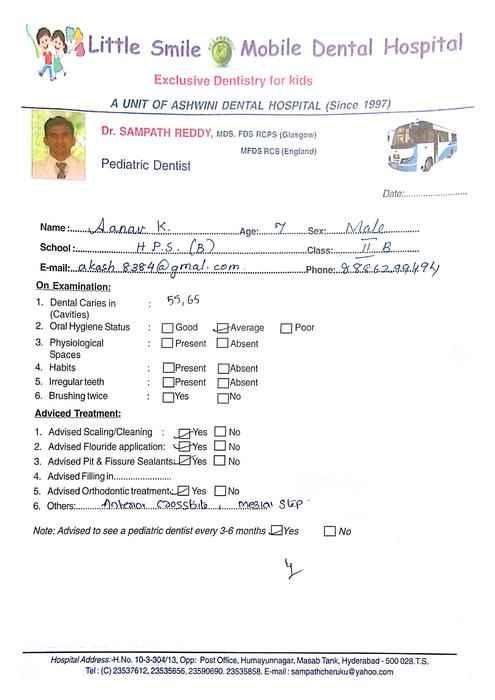 Little Smile Mobile Dental Hospital
Exclusive Dentistry for kids
A UNIT OF ASHWINI DENTAL HOSPITAL (Since 1997)
Dr. SAMPATH REDDY, MDS, FDS RCPS (Glasgow)
MFDS RCS (England)
Pediatric Dentist
Date:
Name: Aanav K. Age: 7 Sex: Male
School: H P.S. (B) Class: II B
E-mail: akash 8384@gmal.com Phone: 8886299494
On Examination:
1. Dental Caries in : 55, 65
(Cavities)
2. Oral Hygiene Status : Good Average Poor
3. Physiological : Present Absent
Spaces
4. Habits : Present Absent
5. Irregular teeth : Present Absent
6. Brushing twice : Yes No
Adviced Treatment:
1. Advised Scaling/Cleaning : Yes No
2. Advised Flouride application: Yes No
3. Advised Pit & Fissure Sealants: Yes No
4. Advised Filling in
5. Advised Orthodontic treatment: Yes No
6. Others: Anterior Crossbite, mesial step
Note: Advised to see a pediatric dentist every 3-6 months Yes No
Hospital Address:-H.No. 10-3-304/13, Opp: Post Office, Humayunnagar, Masab Tank, Hyderabad - 500 028.T.S.
Tel : (C) 23537612, 23535656, 23590690. 23535858. E-mail : sampathcheruku@yahoo.com